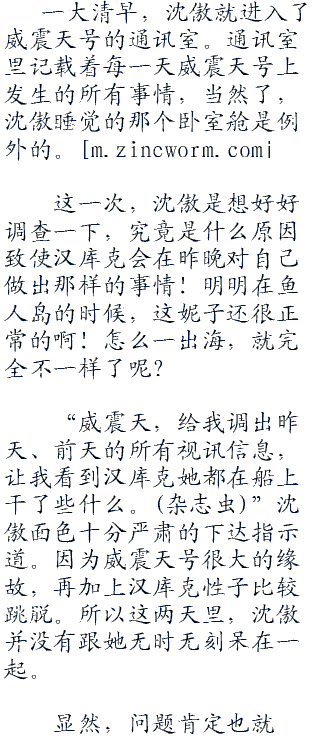 一大清早，沈傲就进入了
威震天号的通讯室。通讯室
里记载着每一天威震天号上
发生的所有事情，当然了，
沈傲睡觉的那个卧室舱是例
外的。[m.zincworm.com|
这一次，沈傲是想好好
调查一下，究竟是什么原因
致使汉库克会在昨晚对自己
做出那样的事情！明明在鱼
人岛的时候，这妮子还很正
常的啊！怎么一出海，就完
全不一样了呢？
“威震天，给我调出昨
天、前天的所有视讯信息，
让我看到汉库克她都在船上
干了些什么。(杂志虫)”沈
傲面色十分严肃的下达指示
道。因为威震天号很大的缘
故，再加上汉库克性子比较
跳脱。所以这两天里，沈傲
并没有跟她无时无刻呆在一
起。
显然，问题肯定也就